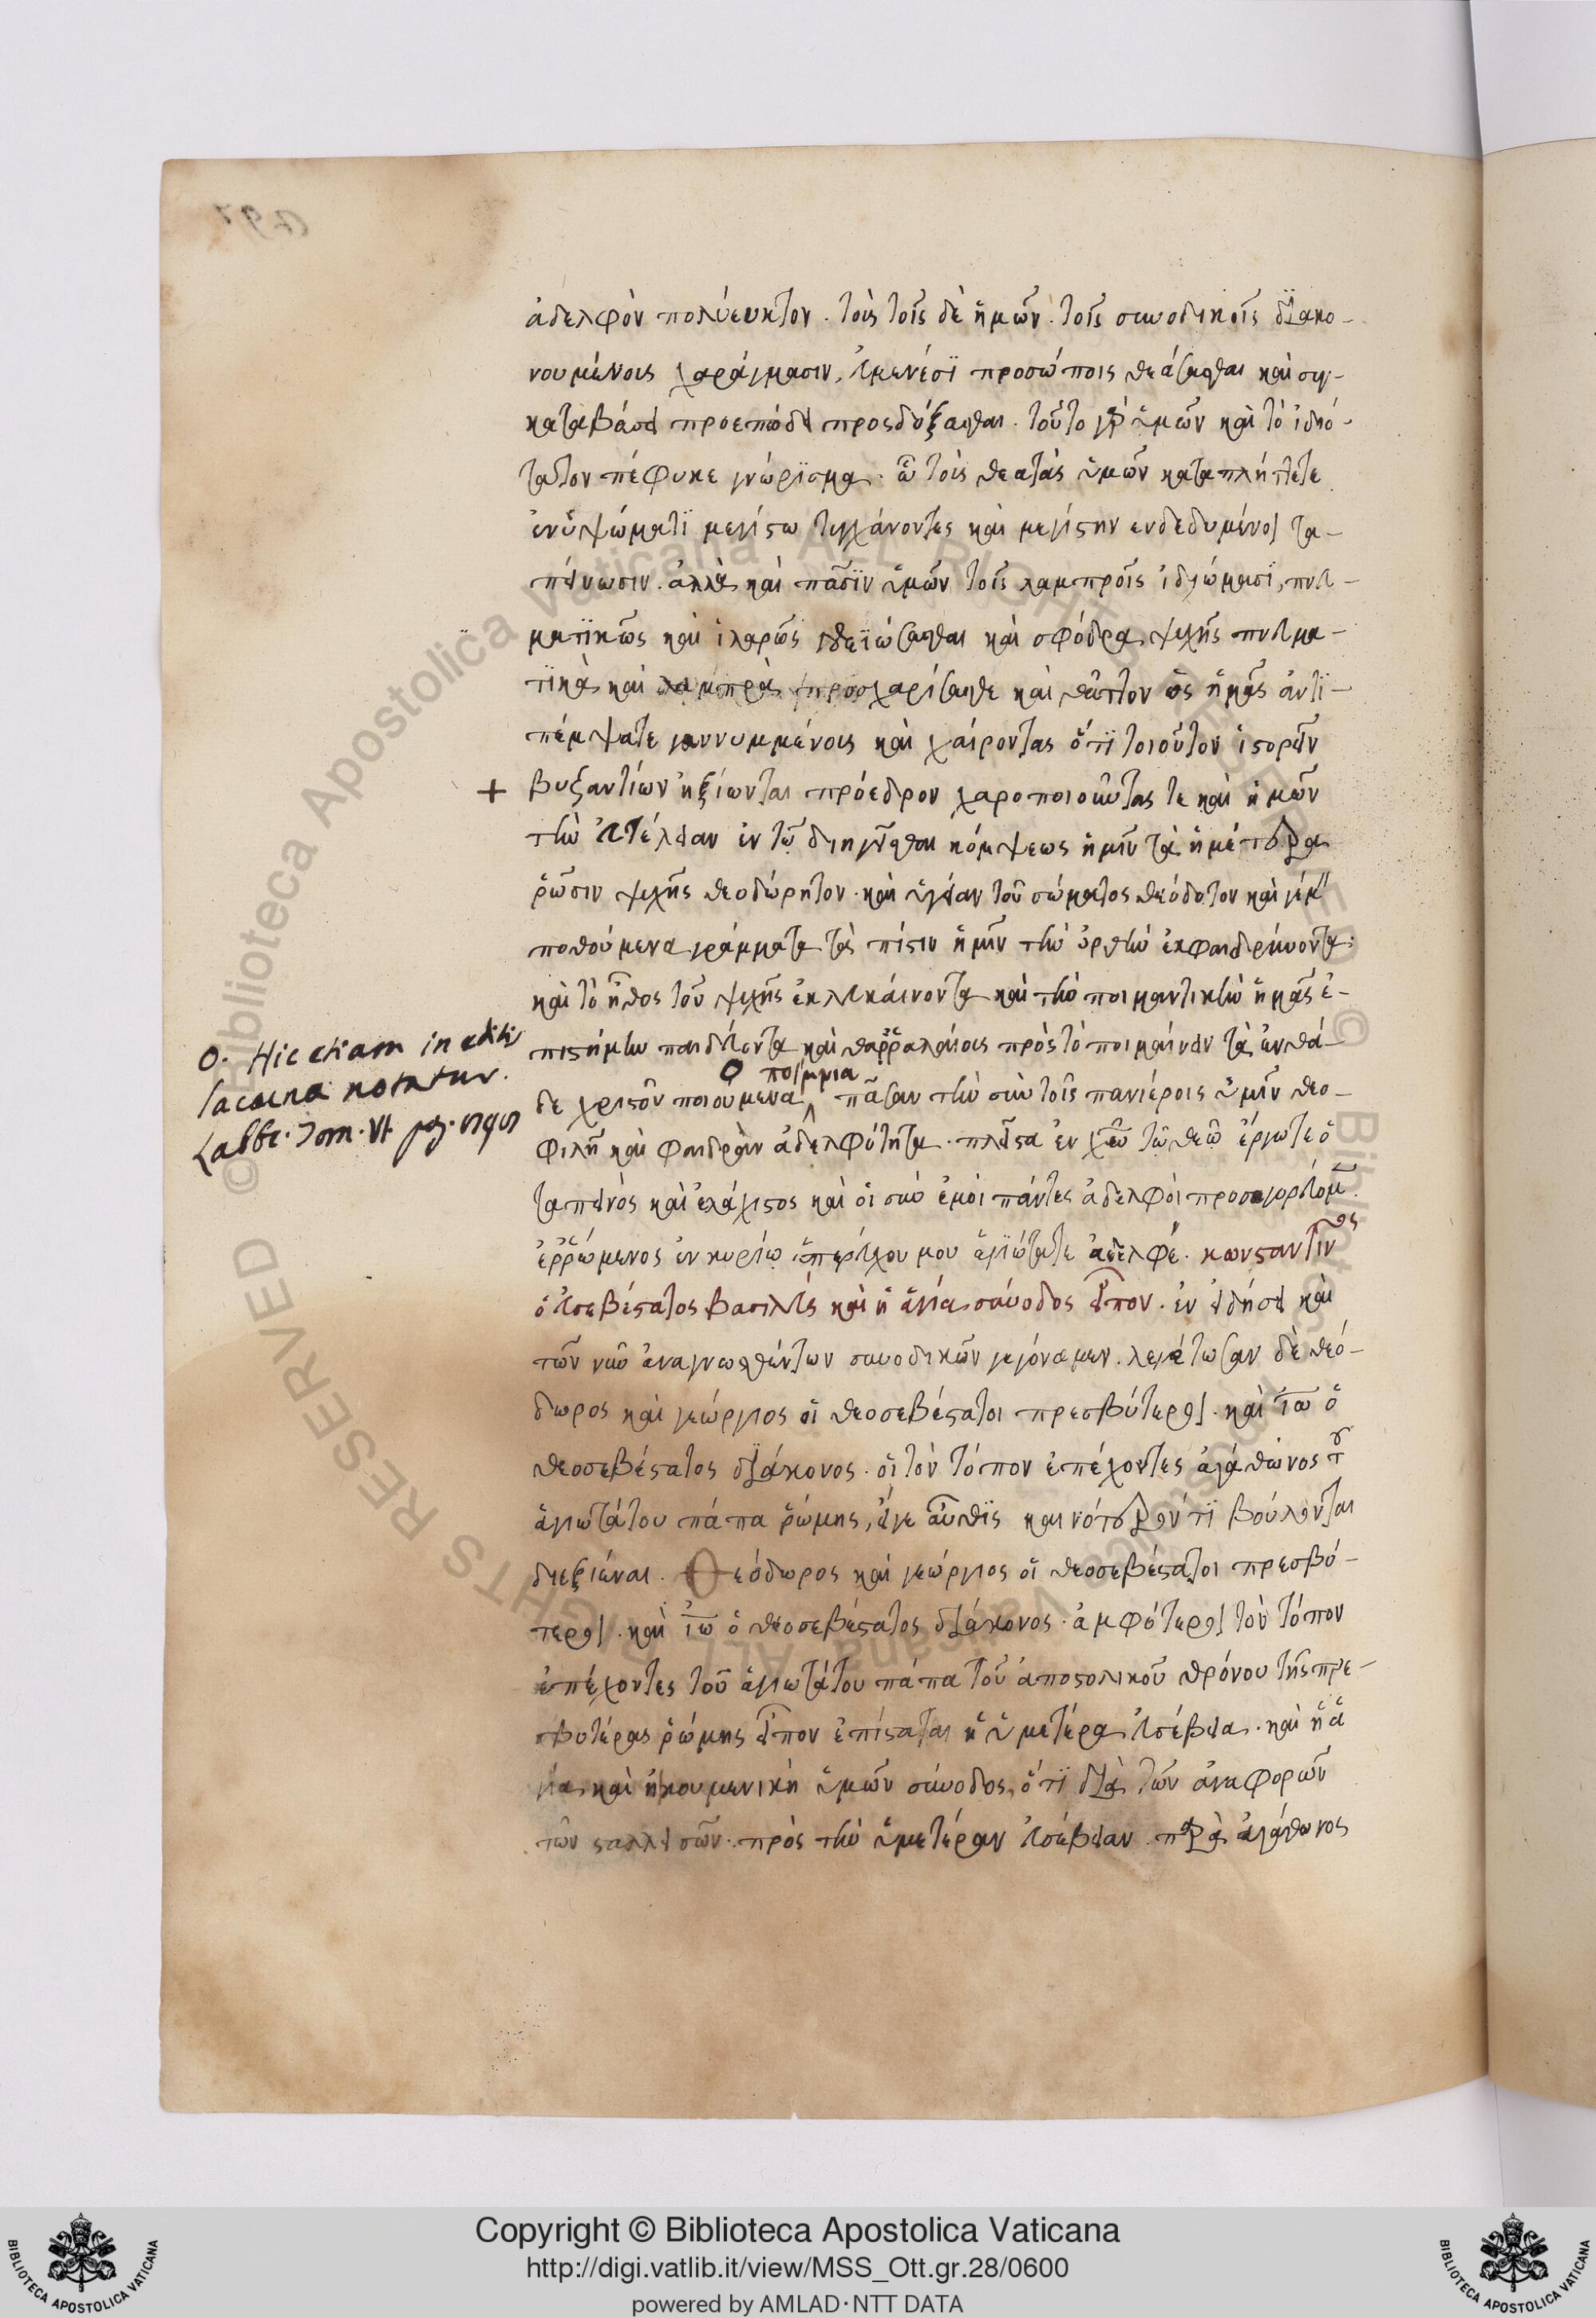 ἀδελφὸν πολύευκτον. τοὺς τοῖς δὲ ἡμῶν. τοῖς συνοδικοῖς διακο-
νουμένοις χαράγμασιν, εὐμενέσι προσώποις θεάσασθαι καὶ συγ-
καταβάσει προεπώδει προσδέξασθαι. τοῦτο γὰρ ὑμῶν καὶ τὸ ἰδικό-
τατον πέφυκε γνώρισμα. ᾧ τοὺς θεατὰς ὑμῶν καταπλήττετε
ἐν ὑψώματι μεγίστω τυγχάνοντες καὶ μεγίστην ενδεδυμένοι τα-
πείνωσιν. ἀλλὰ καὶ πᾶσιν ὑμῶν τοῖς λαμπροῖς ἰδιώμασι, πνευ-
ματικῶς καὶ ἱλαρῶς καὶ σφόδρα ψυχῆς πνευμα-
τικὰ καὶ λαμπρὰ προσχαρίσασθε καὶ θᾶττον ὡς ἡμᾶς ἀντι-
πέμψατε γαννυμμένους καὶ χαίροντας ὅτι τοιοῦτον ἱστορεῖν
+ βυζαντίων ἠξίωνται πρόεδρον χαροποιοῦντας τε καὶ ἡμῶν
τὴν εὐτέλειαν ἐν τῶ διηγεῖσθαι κόμψεως ἡμῖν τὰ ἡμέτερα
ῥῶσιν ψυχῆς θεοδώρητον. καὶ ὑγείαν τοῦ σώματος θεόδοτον καὶ
ποθούμενα γράμματα τὰς πίστιν ἡμῖν τὴν ὀρθὴν ἐκφαιδρύνοντα.
καὶ τὸ ἦθος τοῦ ψυχῆς ἐκλευκαίνοντα καὶ τὴν ποιμαντικὴν ἡμᾶς ἐ-
πιστήμην παιδεύοντα καὶ θαῤῥαλαίους πρὸς τὸ ποιμαίνειν τὰ ἐνθά-
O ποίμνια
δε χριστὸν ποιούμενα πᾶσαν τὴν σὺν τοῖς πανιέροις ὑμῖν θεο-
φιλῆ καὶ φαιδρὰν ἀδελφότητα. πλεῖστα ἐν χῶ τῶ θεῶ ἐγώ τε ὁ
ταπεινὸς καὶ ἐλάχιστος καὶ οἱ σὺν ἐμοὶ πάντες ἀδελφοὶ προσαγορεύομεν.
ἐῤῥωμένος ἐν κυρίω ὑπερεύχου μου ἁγιώτατε ἀδελφέ. κωνσταντῖνος
ὁ εὐσεβέστατος βασιλεὺς καὶ ἡ ἁγία σύνοδος εἶπον. ἐν εἰδήσει καὶ
τῶν νῦν ἀναγνωσθέντων συνοδικῶν γεγόναμεν. λεγέτωσαν δὲ θεό-
δωρος καὶ γεώργιος οἱ θεοσεβέστατοι πρεσβύτεροι. καὶ ἰω ὁ
θεοσεβέστατος διάκονος. οἱ τὸν τόπον ἐπέχοντες ἀγάθωνος τοῦ
ἁγιωτάτου πάπα ῥώμης, εἴγε αὖθις καινότερόν τι βούλονται
διεξιέναι. Θεόδωρος καὶ γεώργιος οἱ θεοσεβέστατοι πρεσβύ-
τεροι. καὶ ἰω ὁ θεοσεβέστατος διάκονος. ἀμφότεροι τὸν τόπον
ἐπέχοντες τοῦ ἁγιωτάτου πάπα τοῦ ἀποστολικοῦ θρόνου τῆς πρε-
σβυτέρας ῥώμης εἶπον ἐπίσταται ἡ ὑμετέρα εὐσέβεια. καὶ ἡ ἁ
γία καὶ ἠκουμενικὴ ὑμῶν σύνοδος, ὅτι διὰ τῶν ἀναφορῶν
τῶν σταλλεισῶν. πρὸς τὴν ὑμετέραν εὐσέβειαν. παρὰ ἀγάθωνος
O. Hic etiam in editis
lacuna notatur.
Labbe. Tom. VI pag.
Copyright © Biblioteca Apostolica Vaticana
http://digi.vatlib.it/view/MSS_Ott.gr.28/0600
powered by AMLAD·NTT DATA
BIBLIOTECA APOSTOLICA VATICANA
BIBLIOTECA APOSTOLICA VATICANA
© Biblioteca Apostolica Vaticana ALL RIGHTS RESERVED © Biblioteca Apostolica Vaticana ALL RIGHTS RESERVED